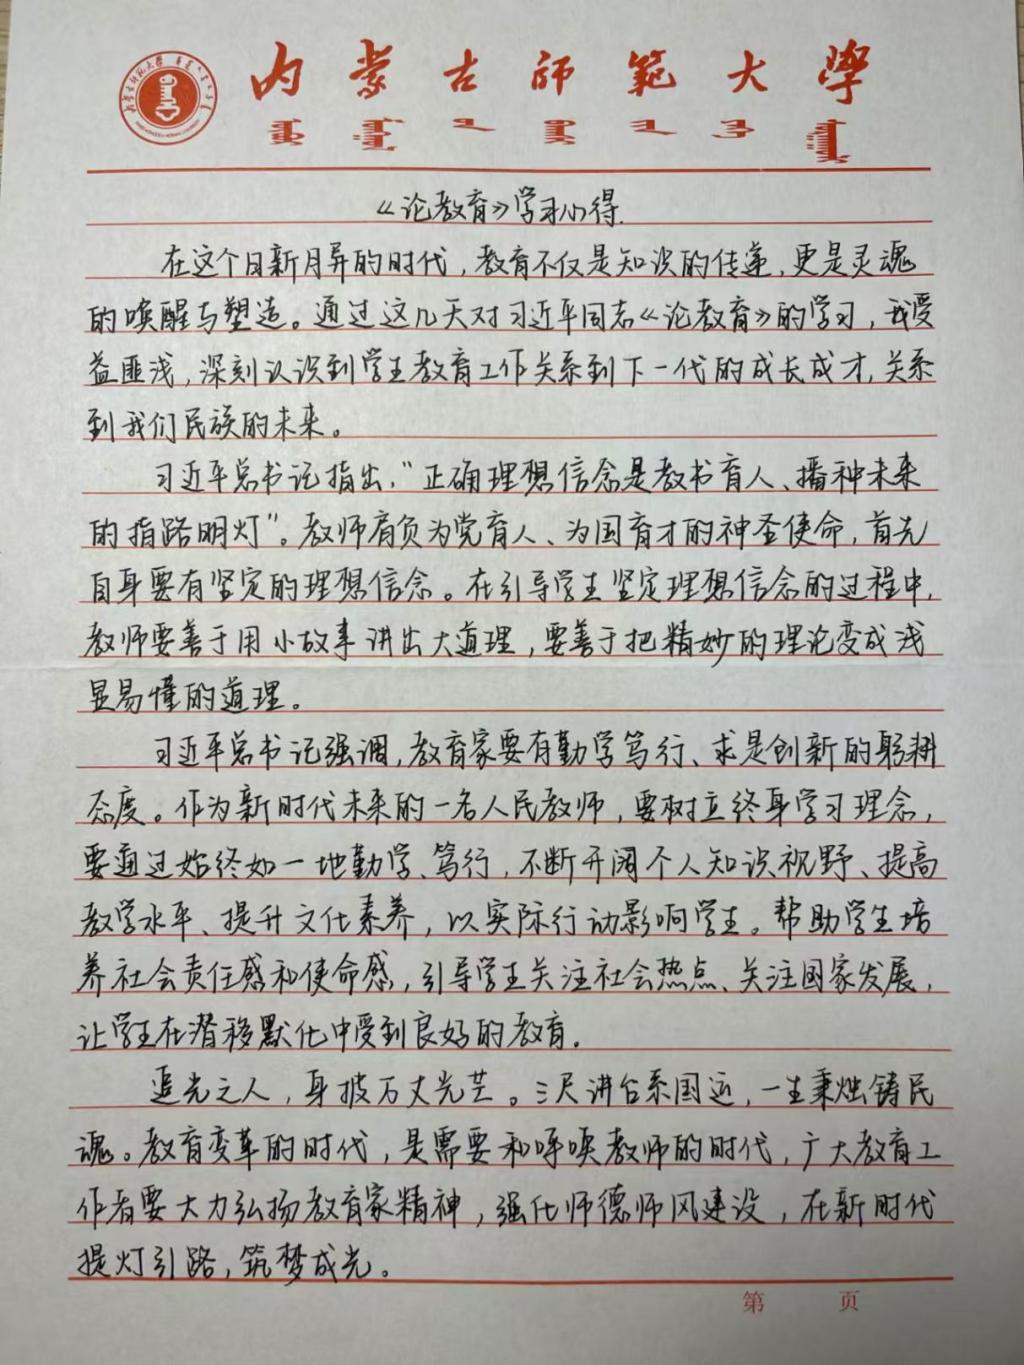 内蒙古师范大学
《论教育》学习心得.
在这个日新月异的时代，教育不仅是知识的传递，更是灵魂
的唤醒与塑造。通过这几天对习近平同志《论教育》的学习，我受
益匪浅，深刻认识到学生教育工作关系到下一代的成长成才，关系
到我们民族的未来。
习近平总书记指出，“正确理想信念是教书育人、播种未来
的指路明灯”。教师肩负为党育人、为国育才的神圣使命，首先
自身要有坚定的理想信念。在引导学生坚定理想信念的过程中，
教师要善于用小故事讲出大道理，要善于把精妙的理论变成浅
显易懂的道理。
习近平总书记强调，教育家要有勤学笃行、求是创新的躬耕
态度。作为新时代未来的一名人民教师，要树立终身学习理念，
要通过始终如一地勤学、笃行，不断开阔个人知识视野、提高
教学水平、提升文化素养，以实际行动影响学生。帮助学生培
养社会责任感和使命感，引导学生关注社会热点、关注国家发展，
让学生在潜移默化中受到良好的教育。
追光之人，身披万丈光芒。三尺讲台系国运，一生秉烛铸民
魂。教育变革的时代，是需要和呼唤教师的时代，广大教育工
作者要大力弘扬教育家精神，强化师德师风建设，在新时代
提灯引路，筑梦成光。
第 页